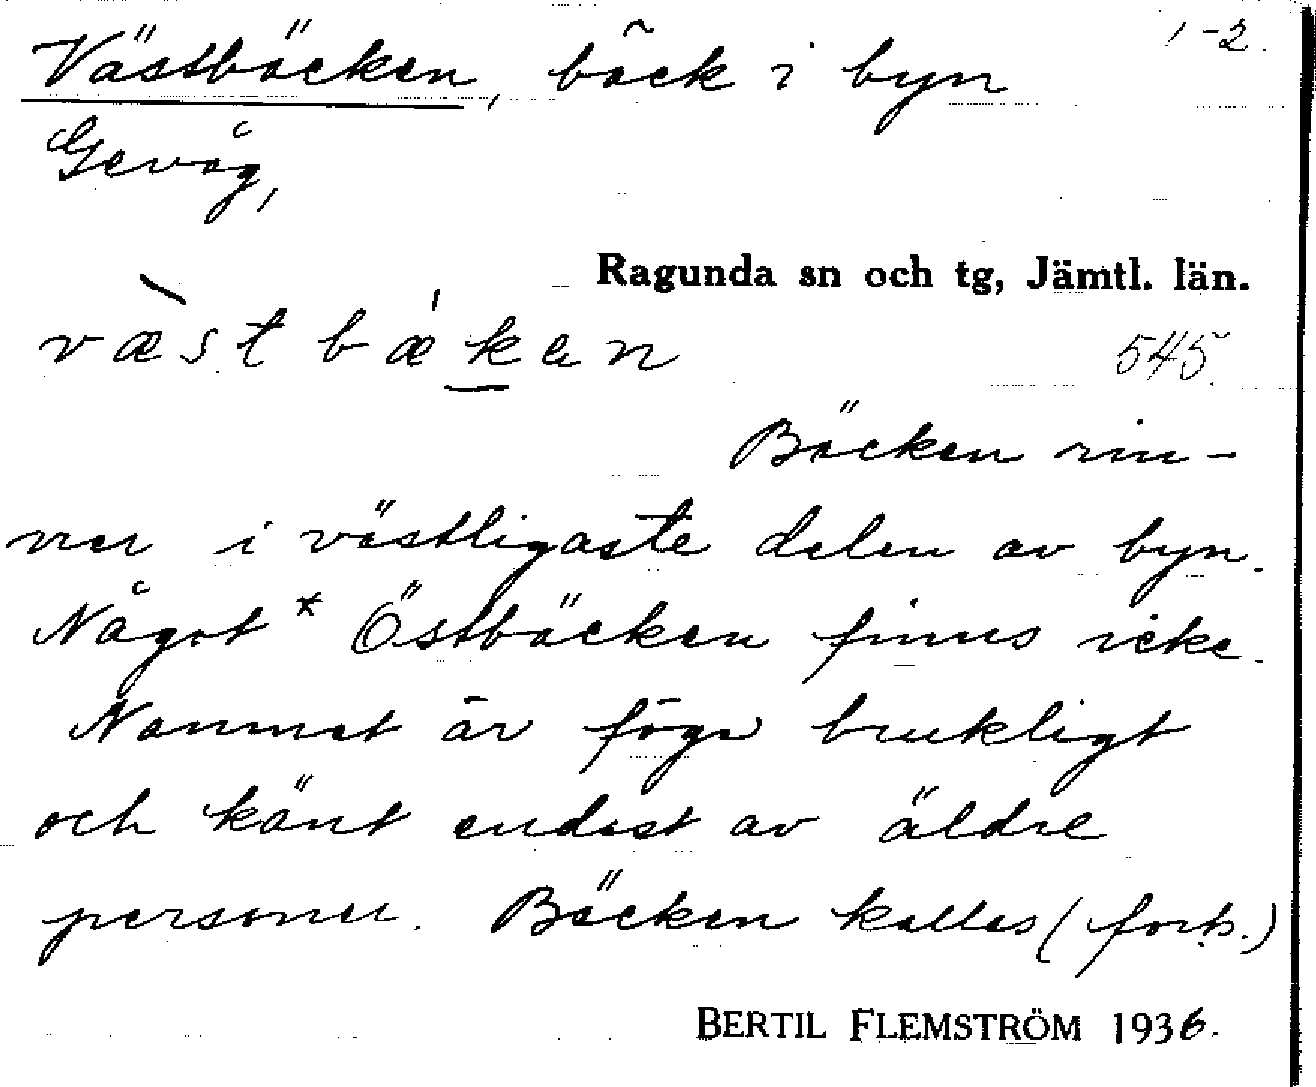 Västbäcken, bäck i byn
1-2.
Gevåg,
Ragunda sn och tg, Jämtl. län.
væ̀stbǽken
545.
Bäcken rin-
ner i västligaste delen av byn.
Något * Östbäcken finns icke.
Namnet är föga brukligt
och känt endast av äldre
personer. Bäcken kallas (forts.)
BERTIL FLEMSTRÖM 1936.